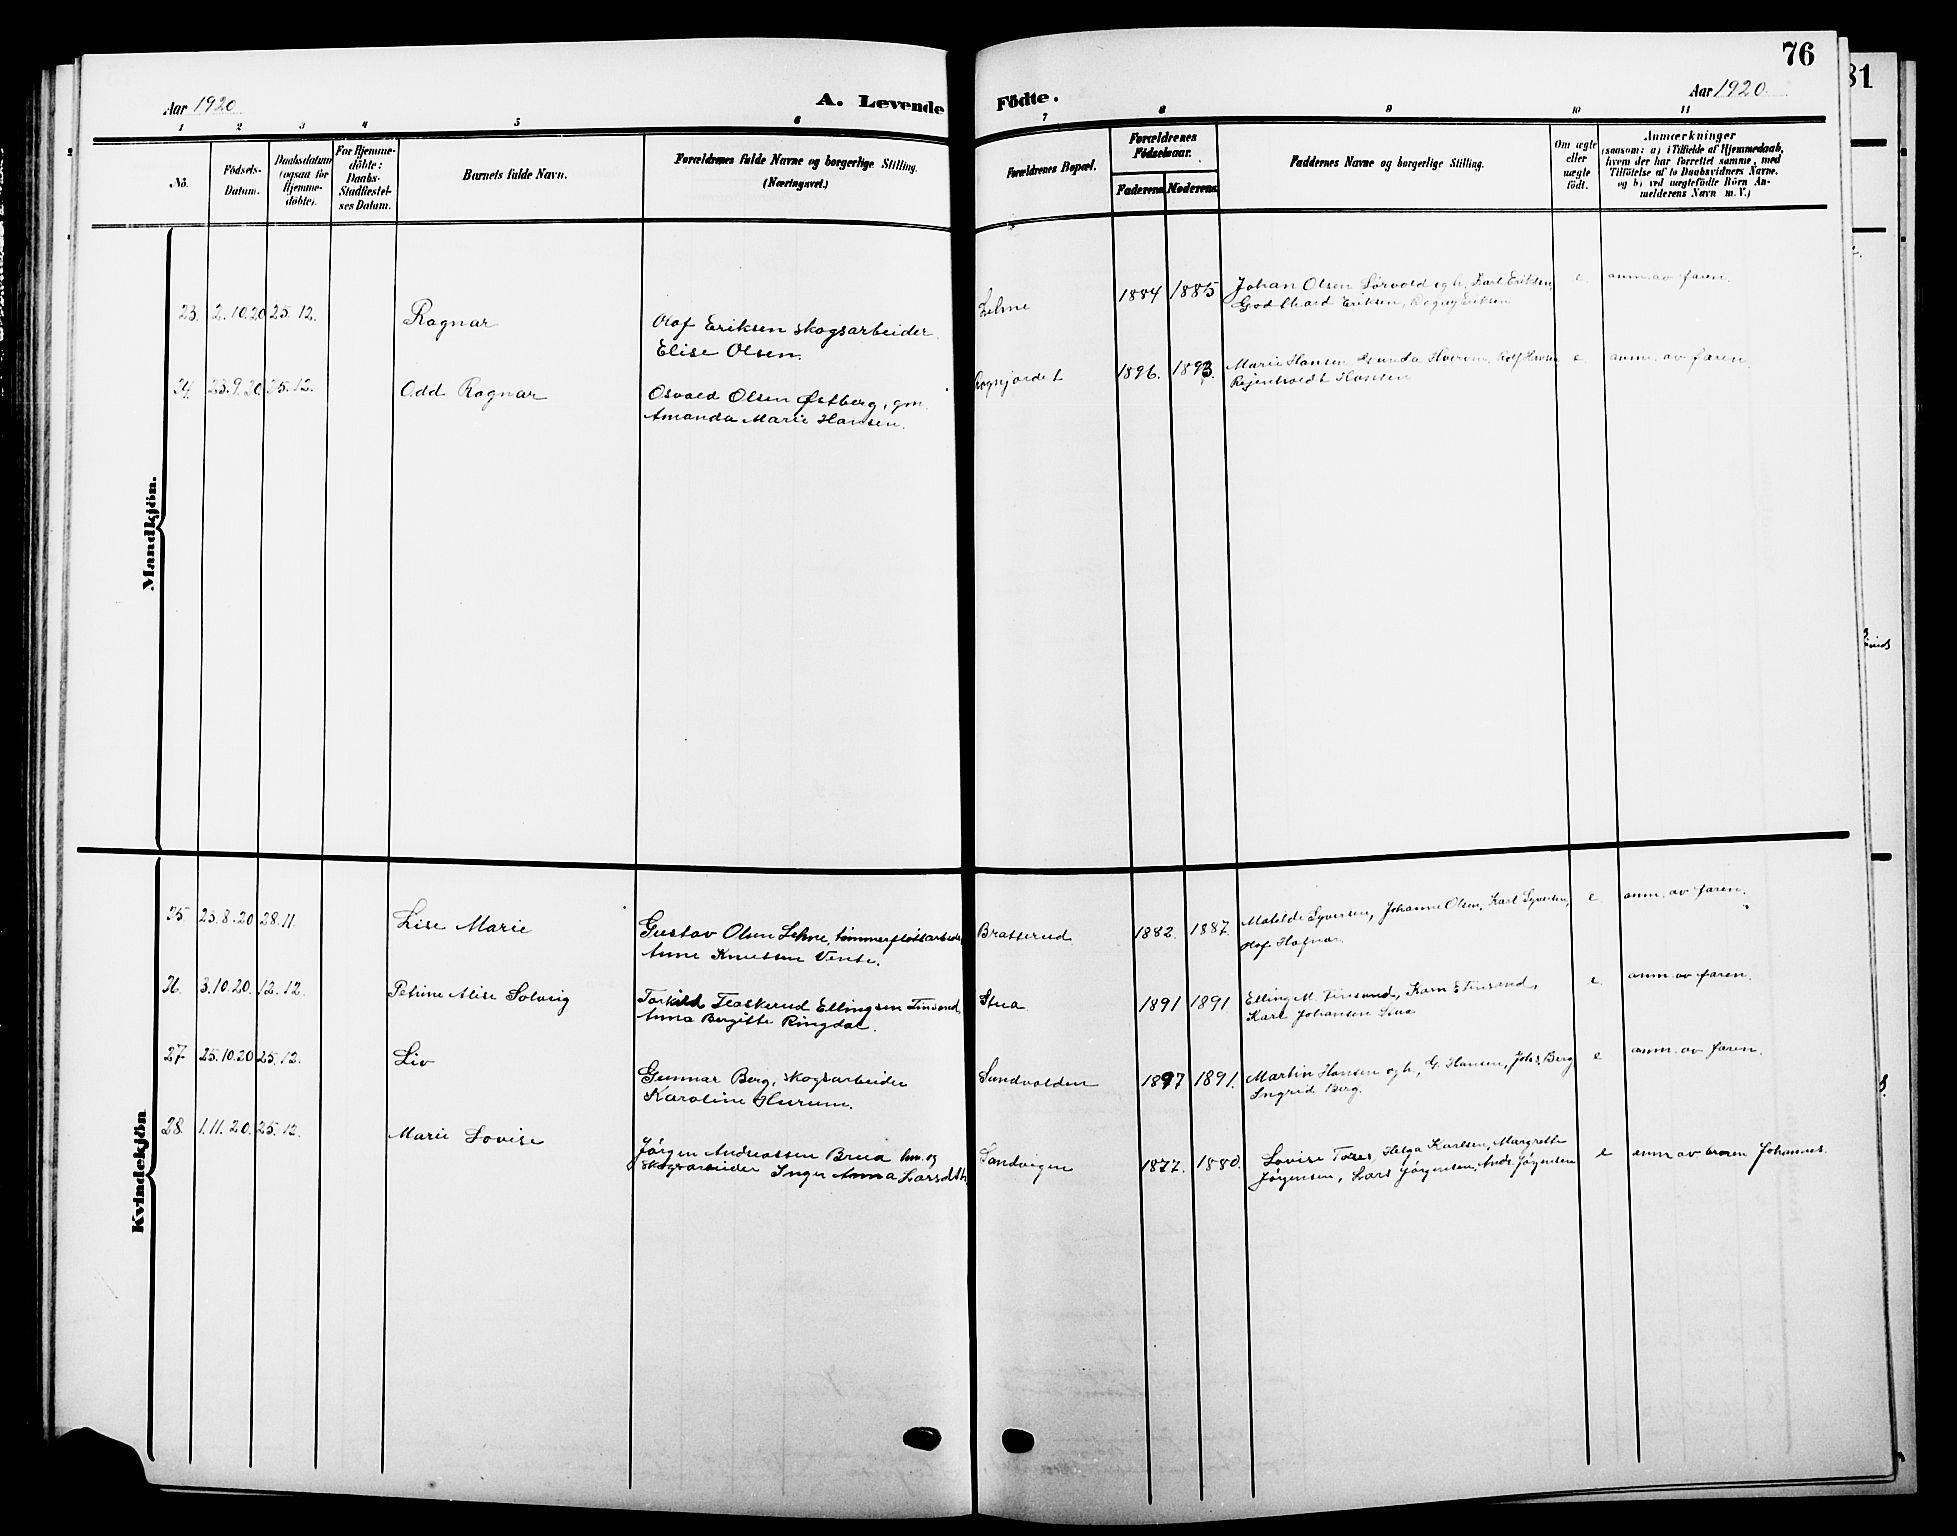 76
Aar 1920
A. Levende Födte.
Aar 1920
1 2 3 4 5 6 7 8 9 10 11
No.
Födsels-
Datum.
Daabsdatum
(ogsaa for
Hjemme-
döbte).
For Hjemme-
döbte:
Daabs-
Stadfæstel-
ses Datum.
Barnets fulde Navn.
Forældrenes fulde Navne og borgerlige Stilling.
(Næringsvei.)
Forældrenes Bopæl.
Forældrenes
Födselsaar.
Faderens
Moderens
Faddernes Navne og borgerlige Stilling.
Om ægte
eller
uægte
födt.
Anmærkninger
(saasom: a) i Tilfælde af Hjemmedaab,
hvem der har forrettet samme, med
Tilföielse af to Daabsvidners Navne.
og b) ved uægtefödte Börn An-
melderens Navn m. V.)
Mandkjön.
23. 2.10.20 25.12. Ragnar
Olaf Eriksen skogsarbeider
Elise Olsen.
Lehne
1884 1885
Johan Olsen Sørvold og h., Karl Eriksen,
Godthard Eriksen, Ragny Eriksen
e. anm. av faren.
24. 23.9.20 25.12. Odd Ragnar
Osvald Olsen Østberg, gm.
Amanda Marie Hansen.
1896. 1893.
Marie Hansen Hansen
Hansen
e anm. av faren.
Kvindekjön
25 23.8.20 28.11. Lise Marie
Gustav Olsen Lehne, tømmerfløtarbeider
Anne Knutsen Vente.
Bratterud
1882. 1887.
Matilde Syversen, Johanne Olsen, Karl Syversen,
Olaf Hafnor
e anm. av faren.
26. 3.10.20. 12.12. Petrine Alise Solveig
Torkild Flaskerud Ellingsen Finsand,
Anna Bergitte Ringdal.
Stua
1891 1891
Elling M. Finsand, Karn E Finsand,
Karl Johansen
e. anm. av faren.
27 25.10.20 25.12. Liv
Gunnar Berg, skogsarbeider
Karoline Hurum.
Sundvolden
1897 1891.
Martin Hansen og h., G. Hansen, Johs. Berg
Ingrid Berg.
e anm. av faren.
28. 1.11.20. 25.12. Marie Lovise
Jørgen Andreassen Brua hm. og
skogsarbeider Inger Anna Larsdtr.
Sandvigen
1877. 1880.
Lovise Helga Karlsen, Margrethe
Jørgensen, Lars Jørgensen, Ands. Jørgensen
e anm. av broren Johannes.
81